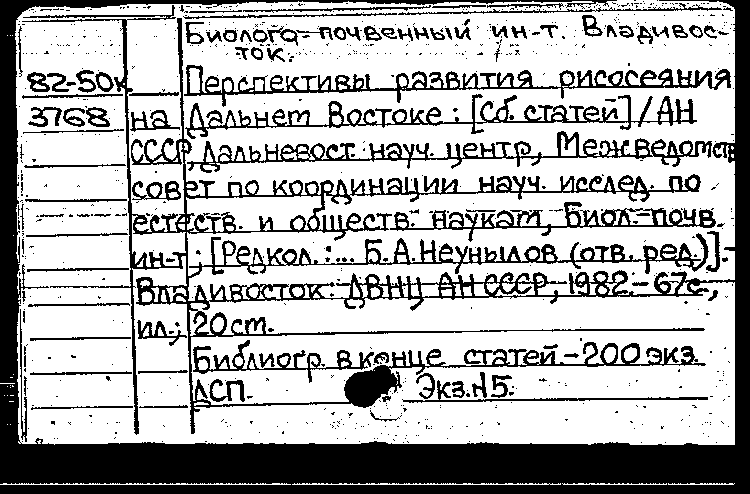 Биолого-почвенный ин-т. Владивос-
ток.
82-50к Перспективы развития рисосеяния
3768 на Дальнем Востоке : [Сб. статей] / АН
СССР, Дальневост. науч. центр, Межведомств.
совет по координации науч. исслед. по
естеств. и обществ. наукам, Биол.-почв.
ин-т ; [Редкол.: ... Б.А. Неунылов (отв. ред.)]. -
Владивосток : ДВНЦ АН СССР, 1982. - 67 с.,
ил.; 20 ст.
Библиогр. в конце статей. - 200 экз.
ДСП. Экз. №5.